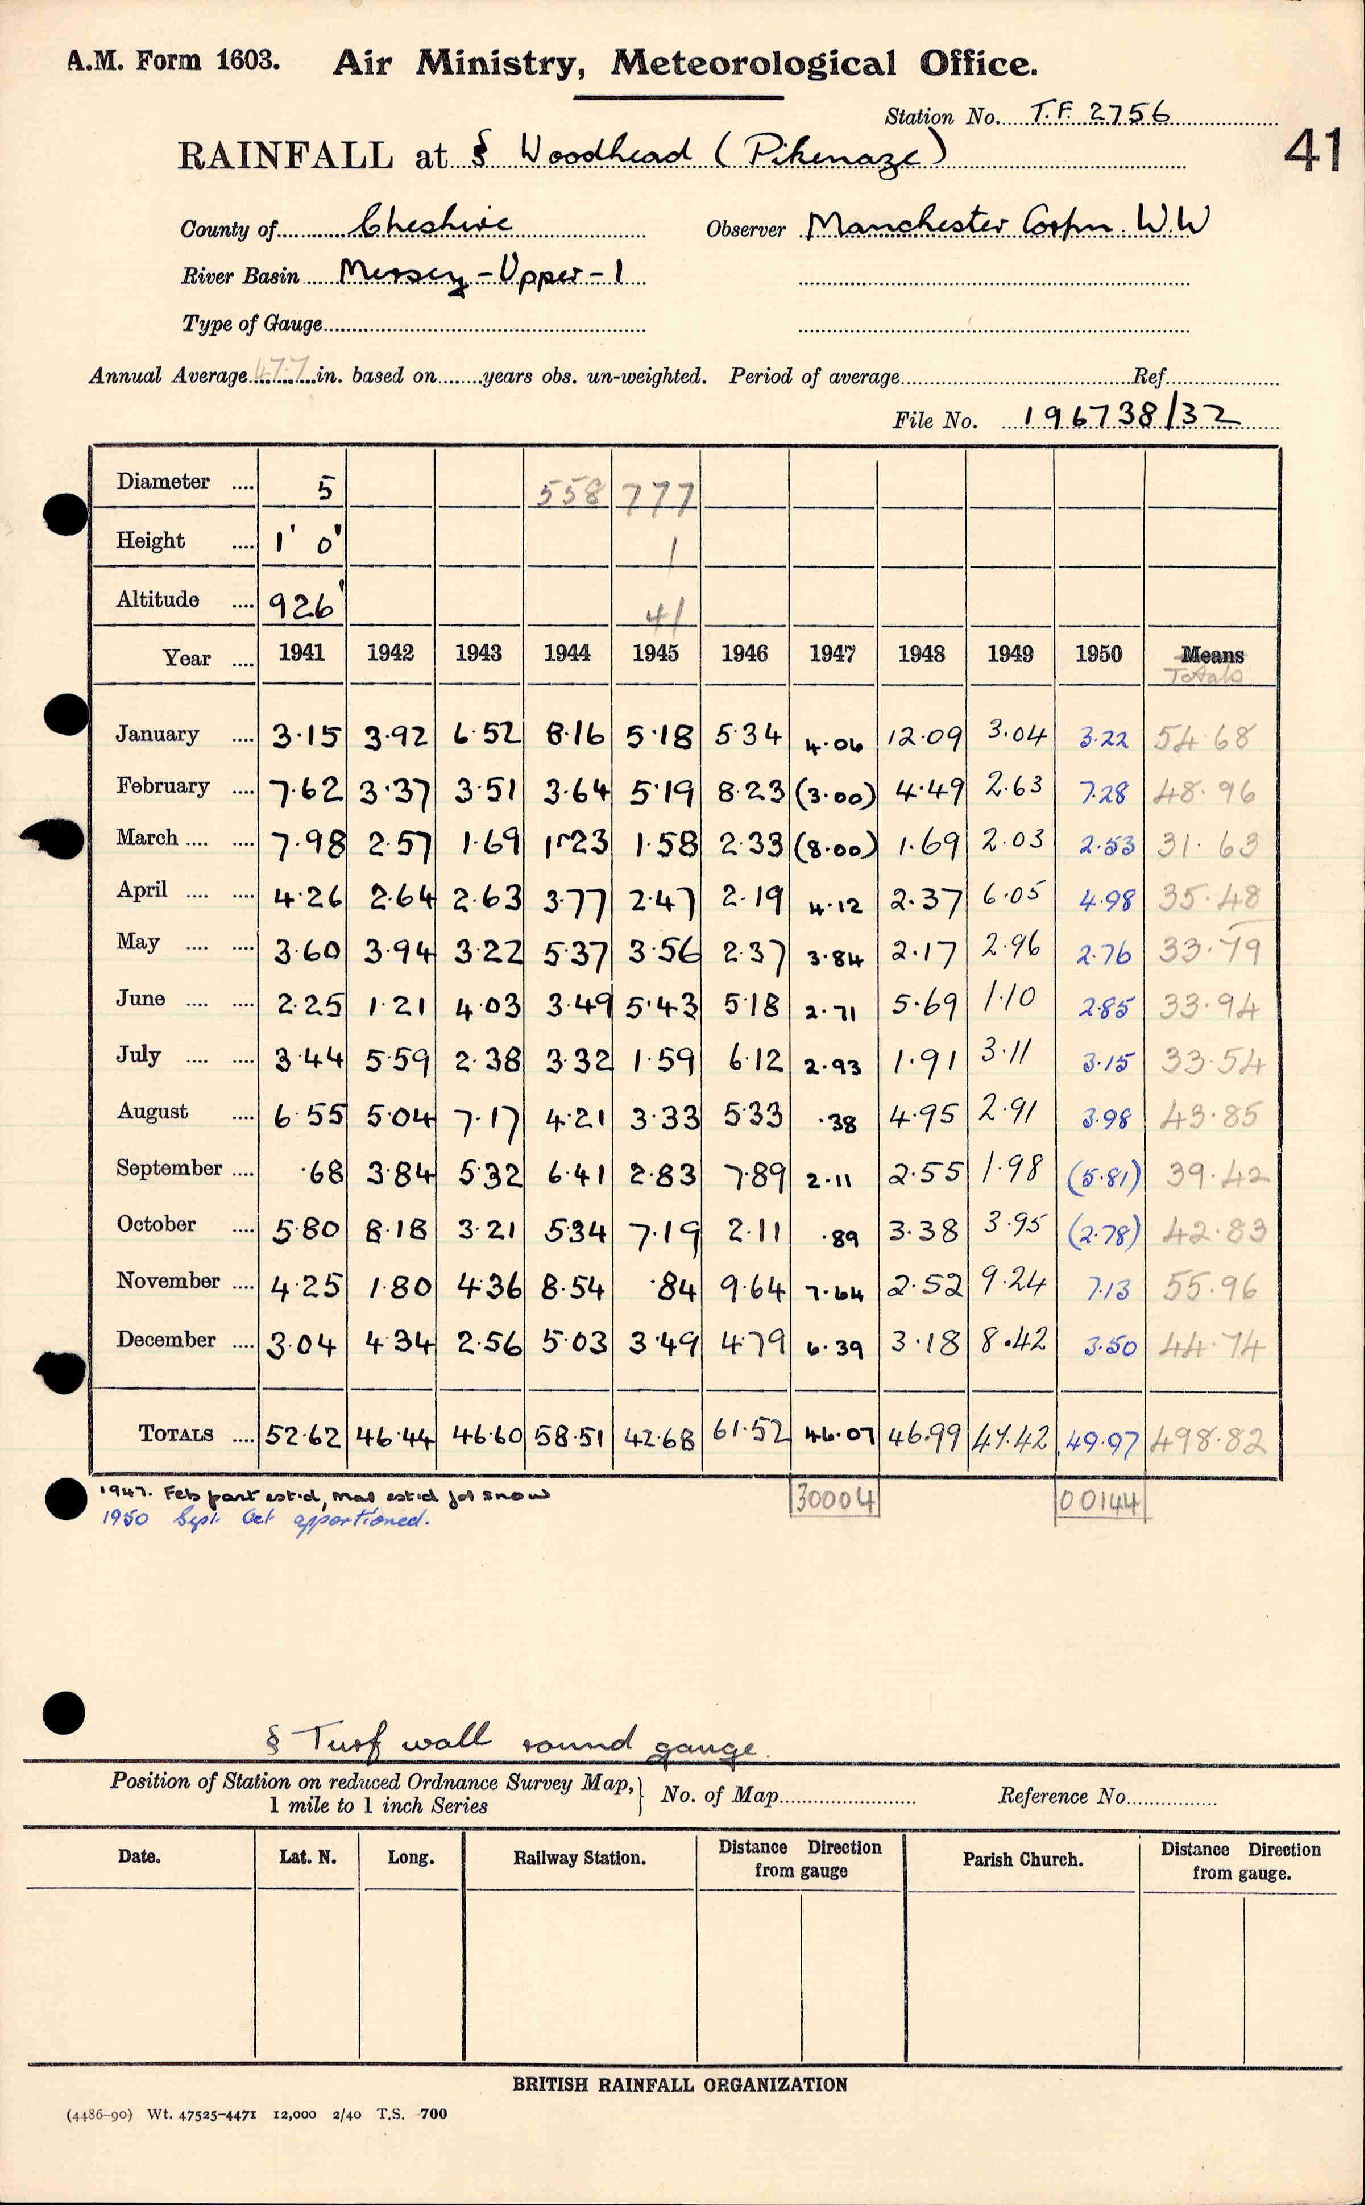 A.M. Form 1603. Air Ministry, Meteorological Office.
Station No. T.F. 2756
41
RAINFALL at § Woodhead (Pikenaze)
County of Cheshire Observer Manchester Corpn. W.W
River Basin Mersey - Upper - 1
Type of Gauge
Annual Average 47.7 in. based on years obs. un-weighted. Period of average Ref.
File No. 196738/32
Diameter .... 5 558 777
Height .... 1' 0" 1
Altitude .... 926' 41
Year .... 1941 1942 1943 1944 1945 1946 1947 1948 1949 1950 Means
Totals
January .... 3.15 3.92 6.52 8.16 5.18 5.34 4.06 12.09 3.04 3.22 54.68
February .... 7.62 3.37 3.51 3.64 5.19 8.23 (3.00) 4.49 2.63 7.28 48.96
March .... .... 7.98 2.57 1.69 1.23 1.58 2.33 (8.00) 1.69 2.03 2.53 31.63
April .... .... 4.26 2.64 2.63 3.77 2.47 2.19 4.12 2.37 6.05 4.98 35.48
May .... .... 3.60 3.94 3.22 5.37 3.56 2.37 3.84 2.17 2.96 2.76 33.79
June .... .... 2.25 1.21 4.03 3.49 5.43 5.18 2.71 5.69 1.10 2.85 33.94
July .... .... 3.44 5.59 2.38 3.32 1.59 6.12 2.93 1.91 3.11 3.15 33.54
August .... 6.55 5.04 7.17 4.21 3.33 5.33 .38 4.95 2.91 3.98 43.85
September .... .68 3.84 5.32 6.41 2.83 7.89 2.11 2.55 1.98 (5.81) 39.42
October .... 5.80 8.18 3.21 5.34 7.19 2.11 .89 3.38 3.95 (2.78) 42.83
November .... 4.25 1.80 4.36 8.54 .84 9.64 7.64 2.52 9.24 7.13 55.96
December .... 3.04 4.34 2.56 5.03 3.49 4.79 6.39 3.18 8.42 3.50 44.74
TOTALS .... 52.62 46.44 46.60 58.51 42.68 61.52 46.07 46.99 47.42 49.97 498.82
1947. Feb part est'd, Mar est'd for snow 30004 00144
1950 Sept. Oct apportioned.
§ Turf wall round gauge.
Position of Station on reduced Ordnance Survey Map, } No. of Map Reference No.
1 mile to 1 inch Series
Date. Lat. N. Long. Railway Station. Distance Direction from gauge Parish Church. Distance Direction from gauge.
BRITISH RAINFALL ORGANIZATION
(4486-90) Wt. 47525-4471 12,000 2/40 T.S. 700